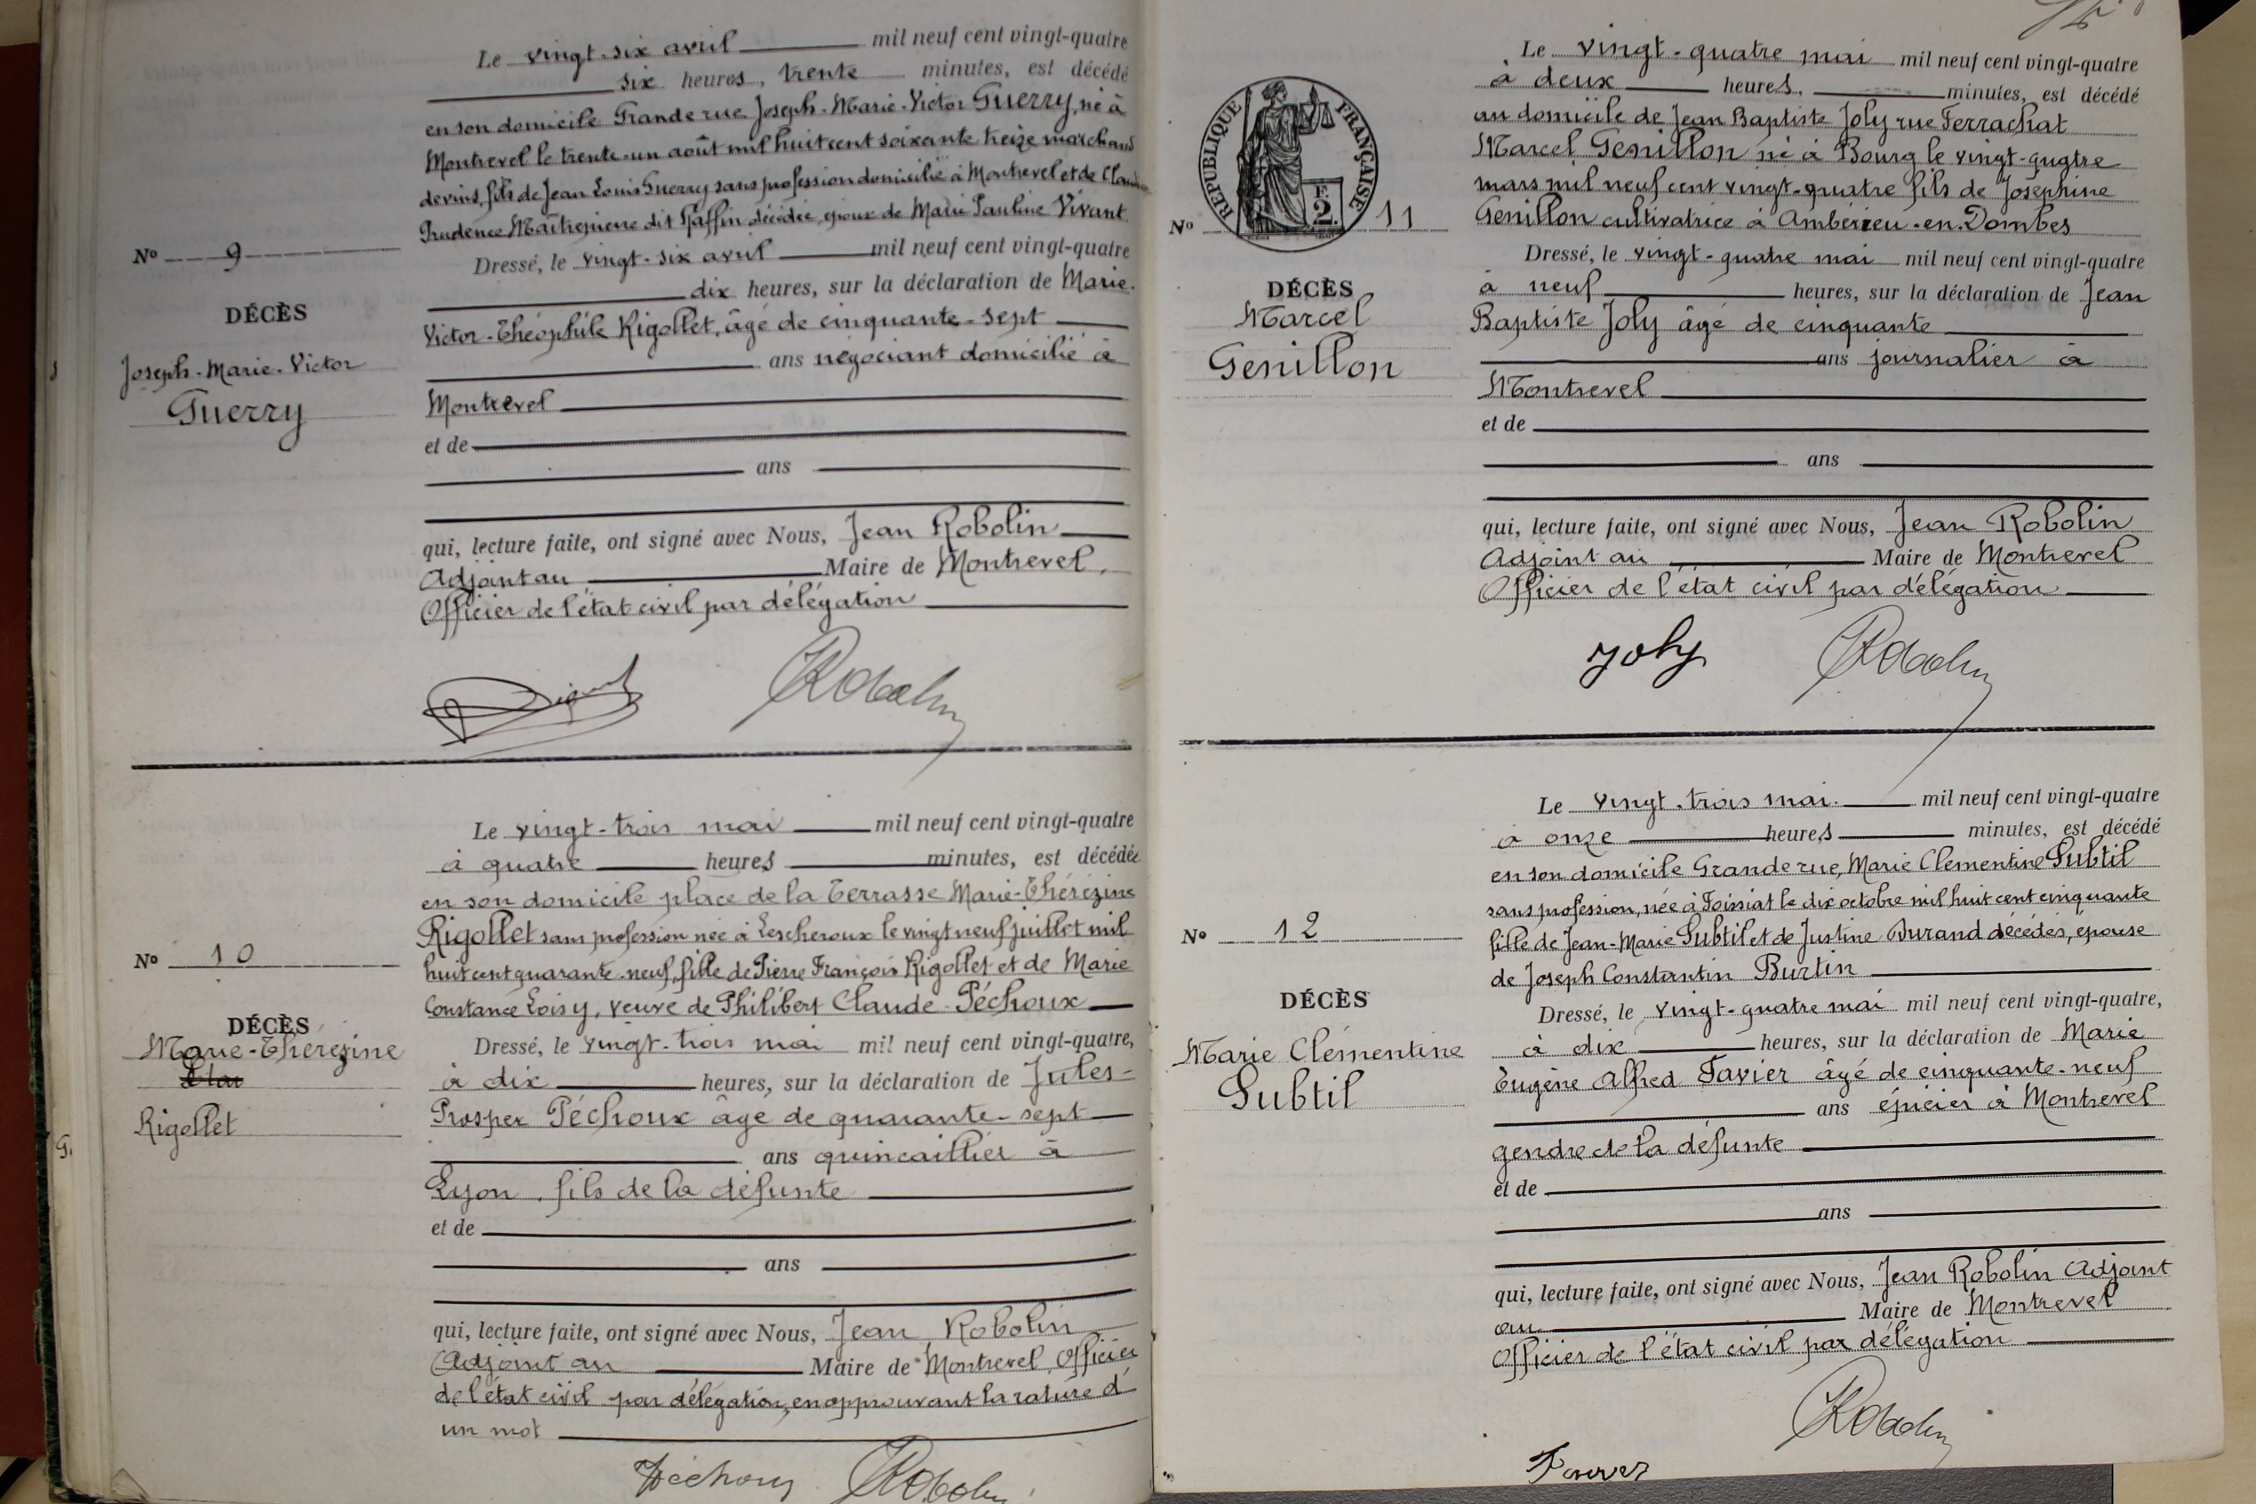 Le vingt-six avril mil neuf cent vingt-quatre
six heures, trente minutes, est décédé
en son domicile Grande rue Joseph-Marie-Victor Guerry, né à
Montrevel le trente-un août mil huit cent soixante treize marchand
de vins, fils de Jean Louis Guerry sans profession domicilié à Montrevel et de Claudine
Prudence dit Raffin décédée, époux de Marie Pauline Vivant
No 9
Dressé, le vingt-six avril mil neuf cent vingt-quatre
dix heures, sur la déclaration de Marie-
DÉCÈS
Victor-Théophile Rigollet, âgé de cinquante-sept
ans négociant domicilié à
Joseph-Marie-Victor
Guerry
Montrevel
et de
ans
qui, lecture faite, ont signé avec Nous, Jean Robolin
Adjoint au Maire de Montrevel,
Officier de l'état civil par délégation
Robolin
Le vingt-trois mai mil neuf cent vingt-quatre
à quatre heures minutes, est décédée
en son domicile place de la Terrasse Marie-Thérézine
Rigollet sans profession née à Lescheroux le vingt neuf juillet mil
huit cent quarante-neuf, fille de Pierre François Rigollet et de Marie
Constance Loisy, veuve de Philibert Claude Péchoux
No 10
DÉCÈS
Marie-Thérézine
Rigollet
Dressé, le vingt-trois mai mil neuf cent vingt-quatre,
à dix heures, sur la déclaration de Jules-
Prosper Péchoux âgé de quarante-sept
ans quincaillier à
Lyon, fils de la défunte
et de
ans
qui, lecture faite, ont signé avec Nous, Jean Robolin
Adjoint au Maire de Montrevel, Officier
de l'état civil par délégation, en approuvant la rature d'
un mot
Péchoux Robolin
Le vingt-quatre mai mil neuf cent vingt-quatre
à deux heures, minutes, est décédé
au domicile de Jean Baptiste Joly rue Ferrachat
Marcel Genillon né à Bourg le vingt-quatre
mars mil neuf cent vingt-quatre fils de Joséphine
Genillon cultivatrice à Ambérieu-en-Dombes
RÉPUBLIQUE FRANÇAISE
F.
2.
No 11
DÉCÈS
Marcel
Genillon
Dressé, le vingt-quatre mai mil neuf cent vingt-quatre
à neuf heures, sur la déclaration de Jean
Baptiste Joly âgé de cinquante
ans journalier à
Montrevel
et de
ans
qui, lecture faite, ont signé avec Nous, Jean Robolin
Adjoint au Maire de Montrevel
Officier de l'état civil par délégation
Joly Robolin
Le vingt-trois mai mil neuf cent vingt-quatre
à onze heures minutes, est décédé
en son domicile Grande rue, Marie Clementine Subtil
sans profession, née à Foissiat le dix octobre mil huit cent cinquante
fille de Jean-Marie Subtil et de Justine Durand décédés, épouse
de Joseph Constantin Burtin
No 12
DÉCÈS
Marie Clémentine
Subtil
Dressé, le vingt-quatre mai mil neuf cent vingt-quatre,
à dix heures, sur la déclaration de Marie
Eugène Alfred Favier âgé de cinquante-neuf
ans épicier à Montrevel
gendre de la défunte
et de
ans
qui, lecture faite, ont signé avec Nous, Jean Robolin Adjoint
au Maire de Montrevel
Officier de l'état civil par délégation
Robolin
Favier